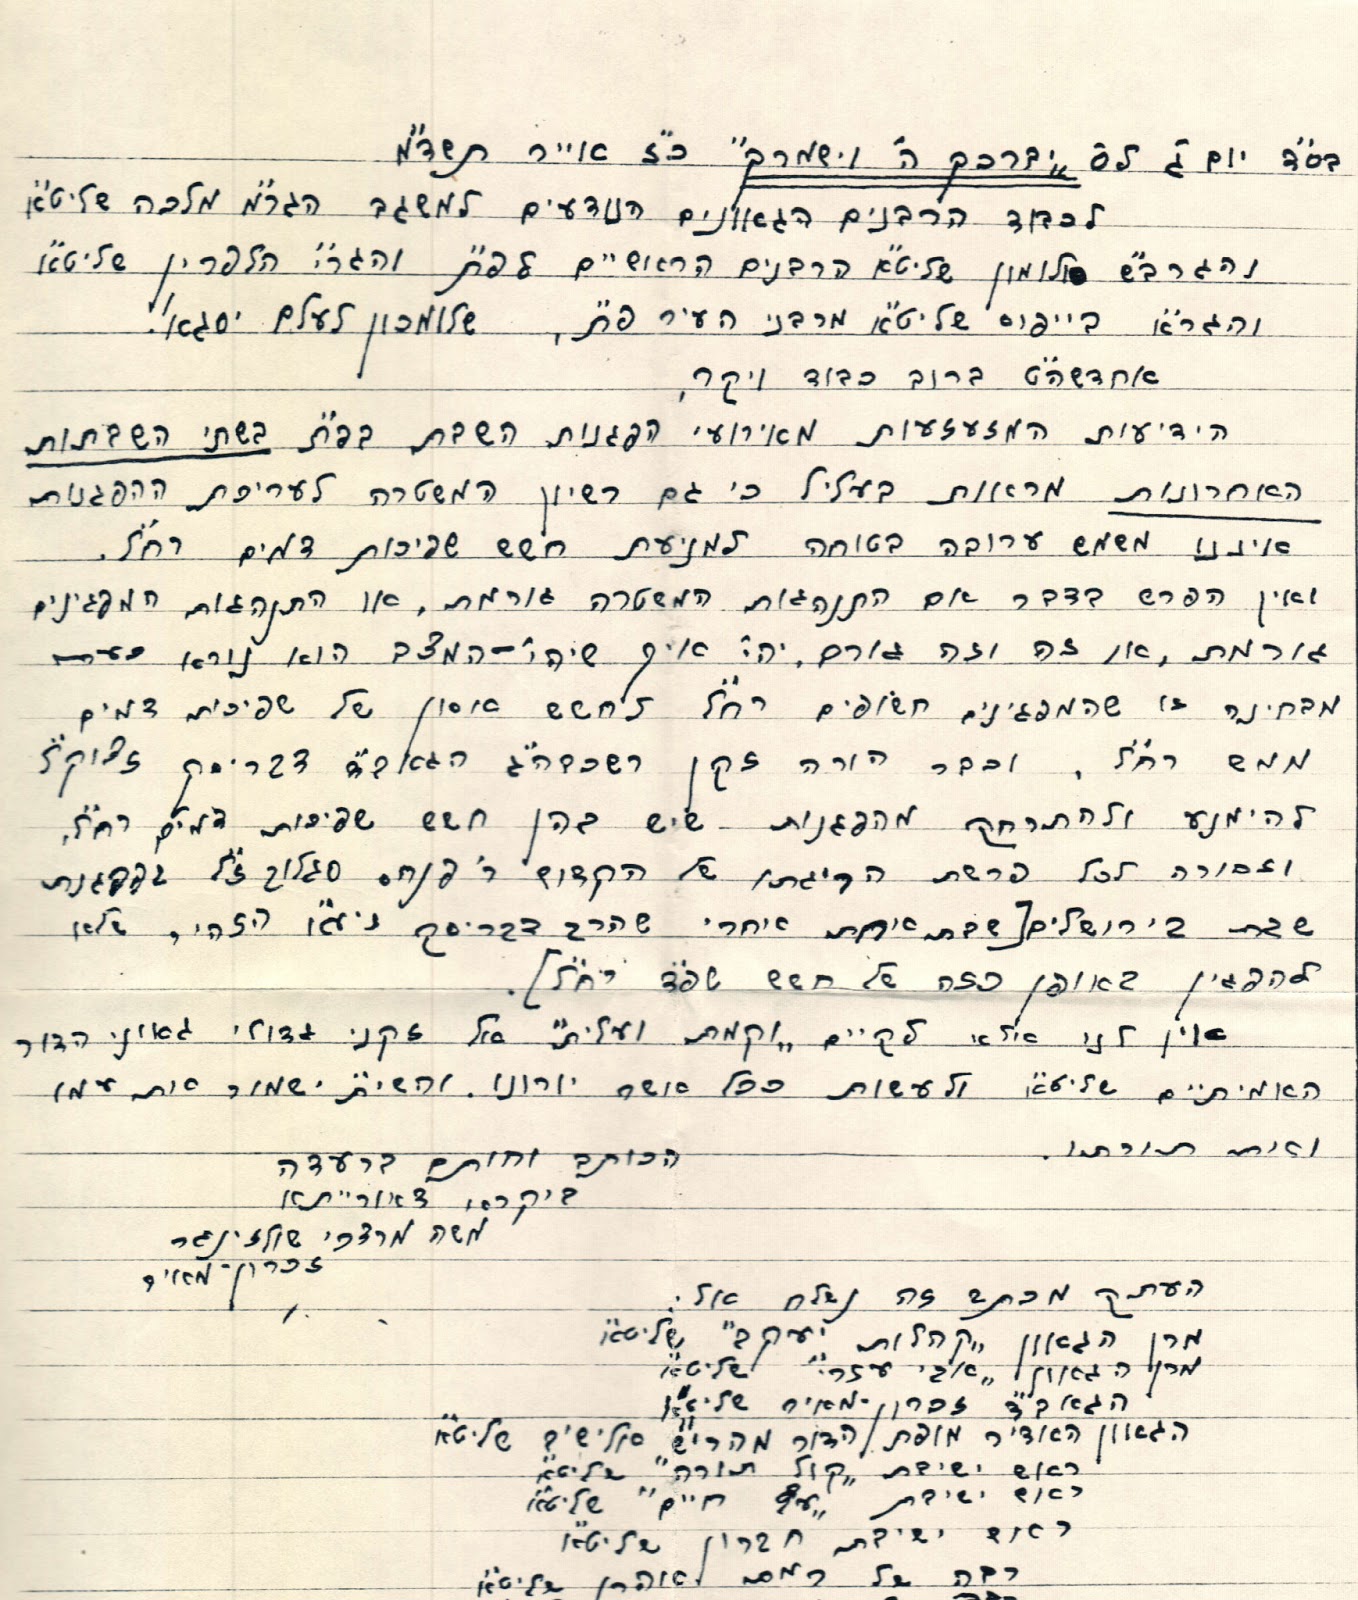 בס"ד יום ג' לס' "יברכך ה' וישמרך" כ"ז אייר תשד"מ
לכבוד הרבנים הגאונים הנודעים למשגב הגר"מ מלכה שליט"א
והגרב"ש סלומון שליט"א הרבנים הראשיים לפ"ת והגר"י הלפרין שליט"א
והגר"א בייפוס שליט"א מרבני העיר פ"ת, שלומכון לעלם יסגא!
אחדשה"ט ברוב כבוד ויקר,
הידיעות המזעזעות מאירועי הפגנות השבת בפ"ת בשתי השבתות
האחרונות מראות בעליל כי גם רשיון המשטרה לעריכת ההפגנות
איננו משמש ערובה בטוחה למניעת חשש שפיכות דמים רח"ל.
ואין הפרש בדבר אם התנהגות המשטרה גורמת, או התנהגות המפגינים
גורמת, או זה וזה גורם, יהי' איך שיהי' - המצב הוא נורא
מבחינה זו שהמפגינים חשופים רח"ל לחשש אסון של שפיכות דמים
ממש רח"ל, וכבר הורה זקן רשכבה"ג הגאב"ד דבריסק זצוק"ל
להימנע ולהתרחק מהפגנות שיש בהן חשש שפיכות דמים רח"ל,
וכסורה לכל פרשת הריגתו של הקדוש ר' פנחס סגלוב ז"ל בהפגנת
שבת בירושלים [שבת אחת אחרי שהרב דבריסק זיע"א הזהיר שלא
להפגין באופן כזה של חשש שפ"ד רח"ל].
אין לנו אלא לקיים "וקמת ועלית" אל זקני גדולי גאוני הדור
האמיתיים שליט"א ולעשות ככל אשר יורונו. והשי"ת ישמור את עמו
ואת תורתו.
הכותב וחותם ברעדה
ביקרא דאורייתא
משה מרדכי שולזינגר
זכרון-מאיר
העתק מכתב זה נשלח אל:
מרן הגאון "קהלות יעקב" שליט"א
מרן הגאון "אבי עזרי" שליט"א
הגאב"ד זכרון-מאיר שליט"א
הגאון האדיר מופת הדור מהרי"ש אלישיב שליט"א
ראש ישיבת "קול תורה" שליט"א
ראש ישיבת "עץ חיים" שליט"א
ראש ישיבת חברון שליט"א
רבה של רמת אהרן שליט"א